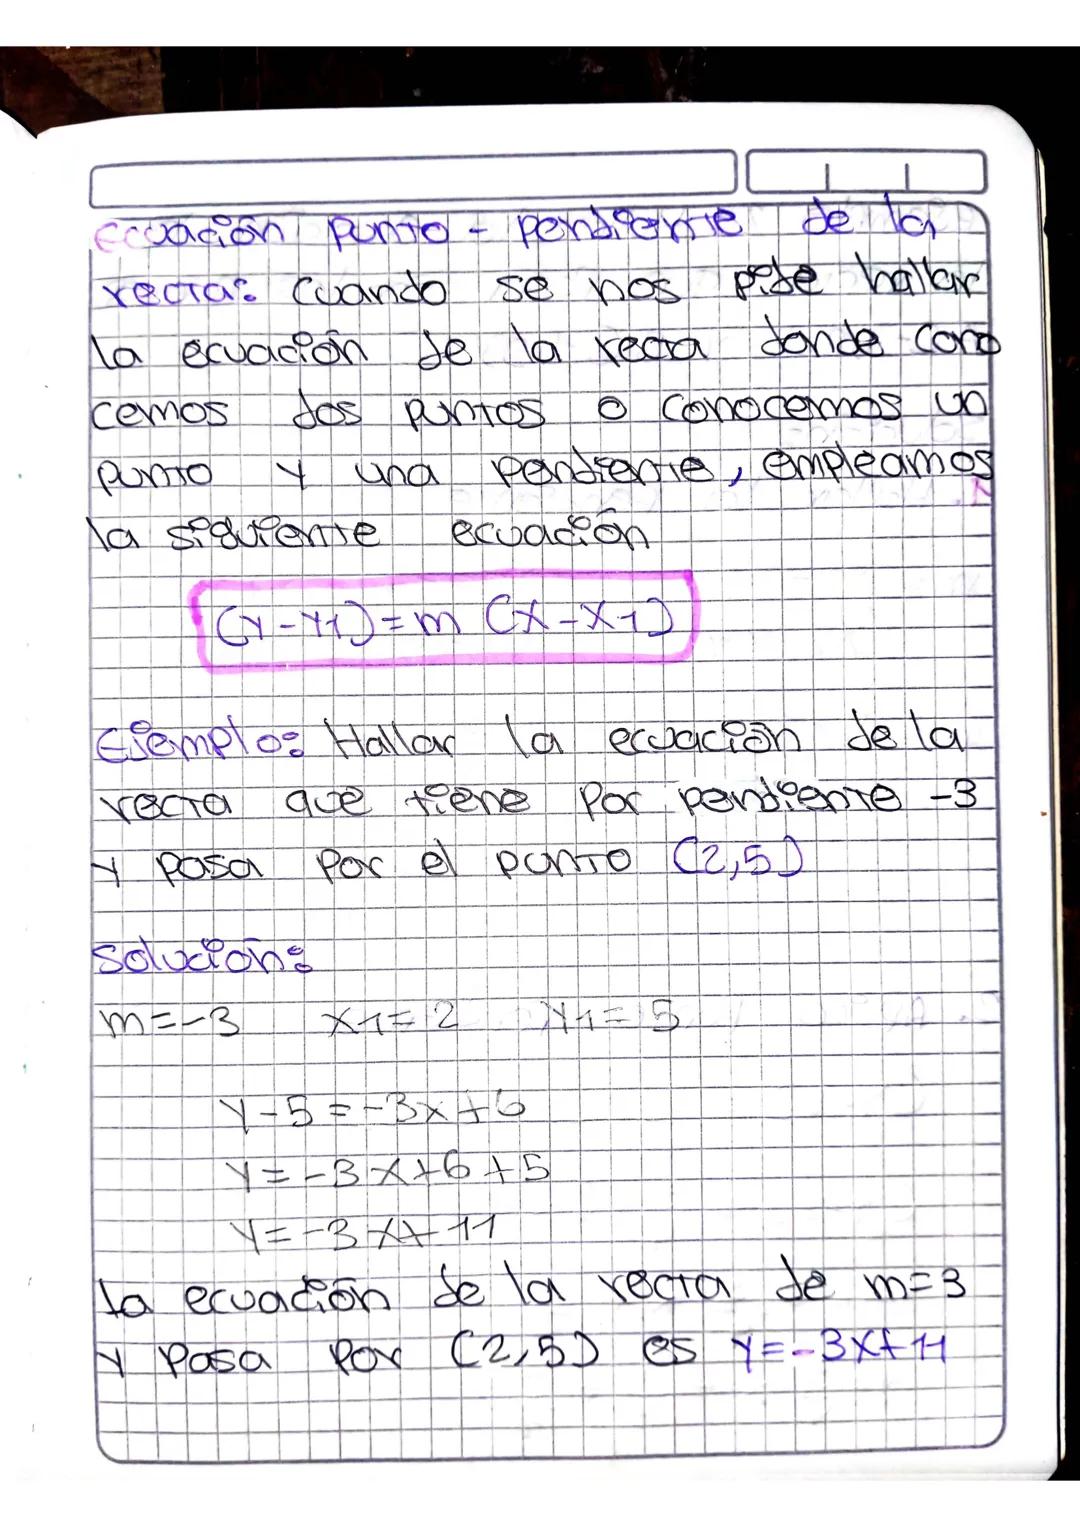 Ecuación punto - pendiente de la
recta: Cuando se nos pide hallar
la ecuación de la recta donde cono
cemos dos puntos o conocemos un
punto y una pendiente, empleamos
la siguiente ecuación
(Y-Y1)=m (X-X1)
Ejemplo: Hallar la ecuación de la
recta que tiene por pendiente -3
y pasa por el punto (2,5)
Solución:
m=-3 X1=2 Y1=5
Y-5=-3x+6
Y=-3x+6+5
Y=-3x+11
la ecuación de la recta de m=3
y pasa por (2,5) es Y=-3x+11